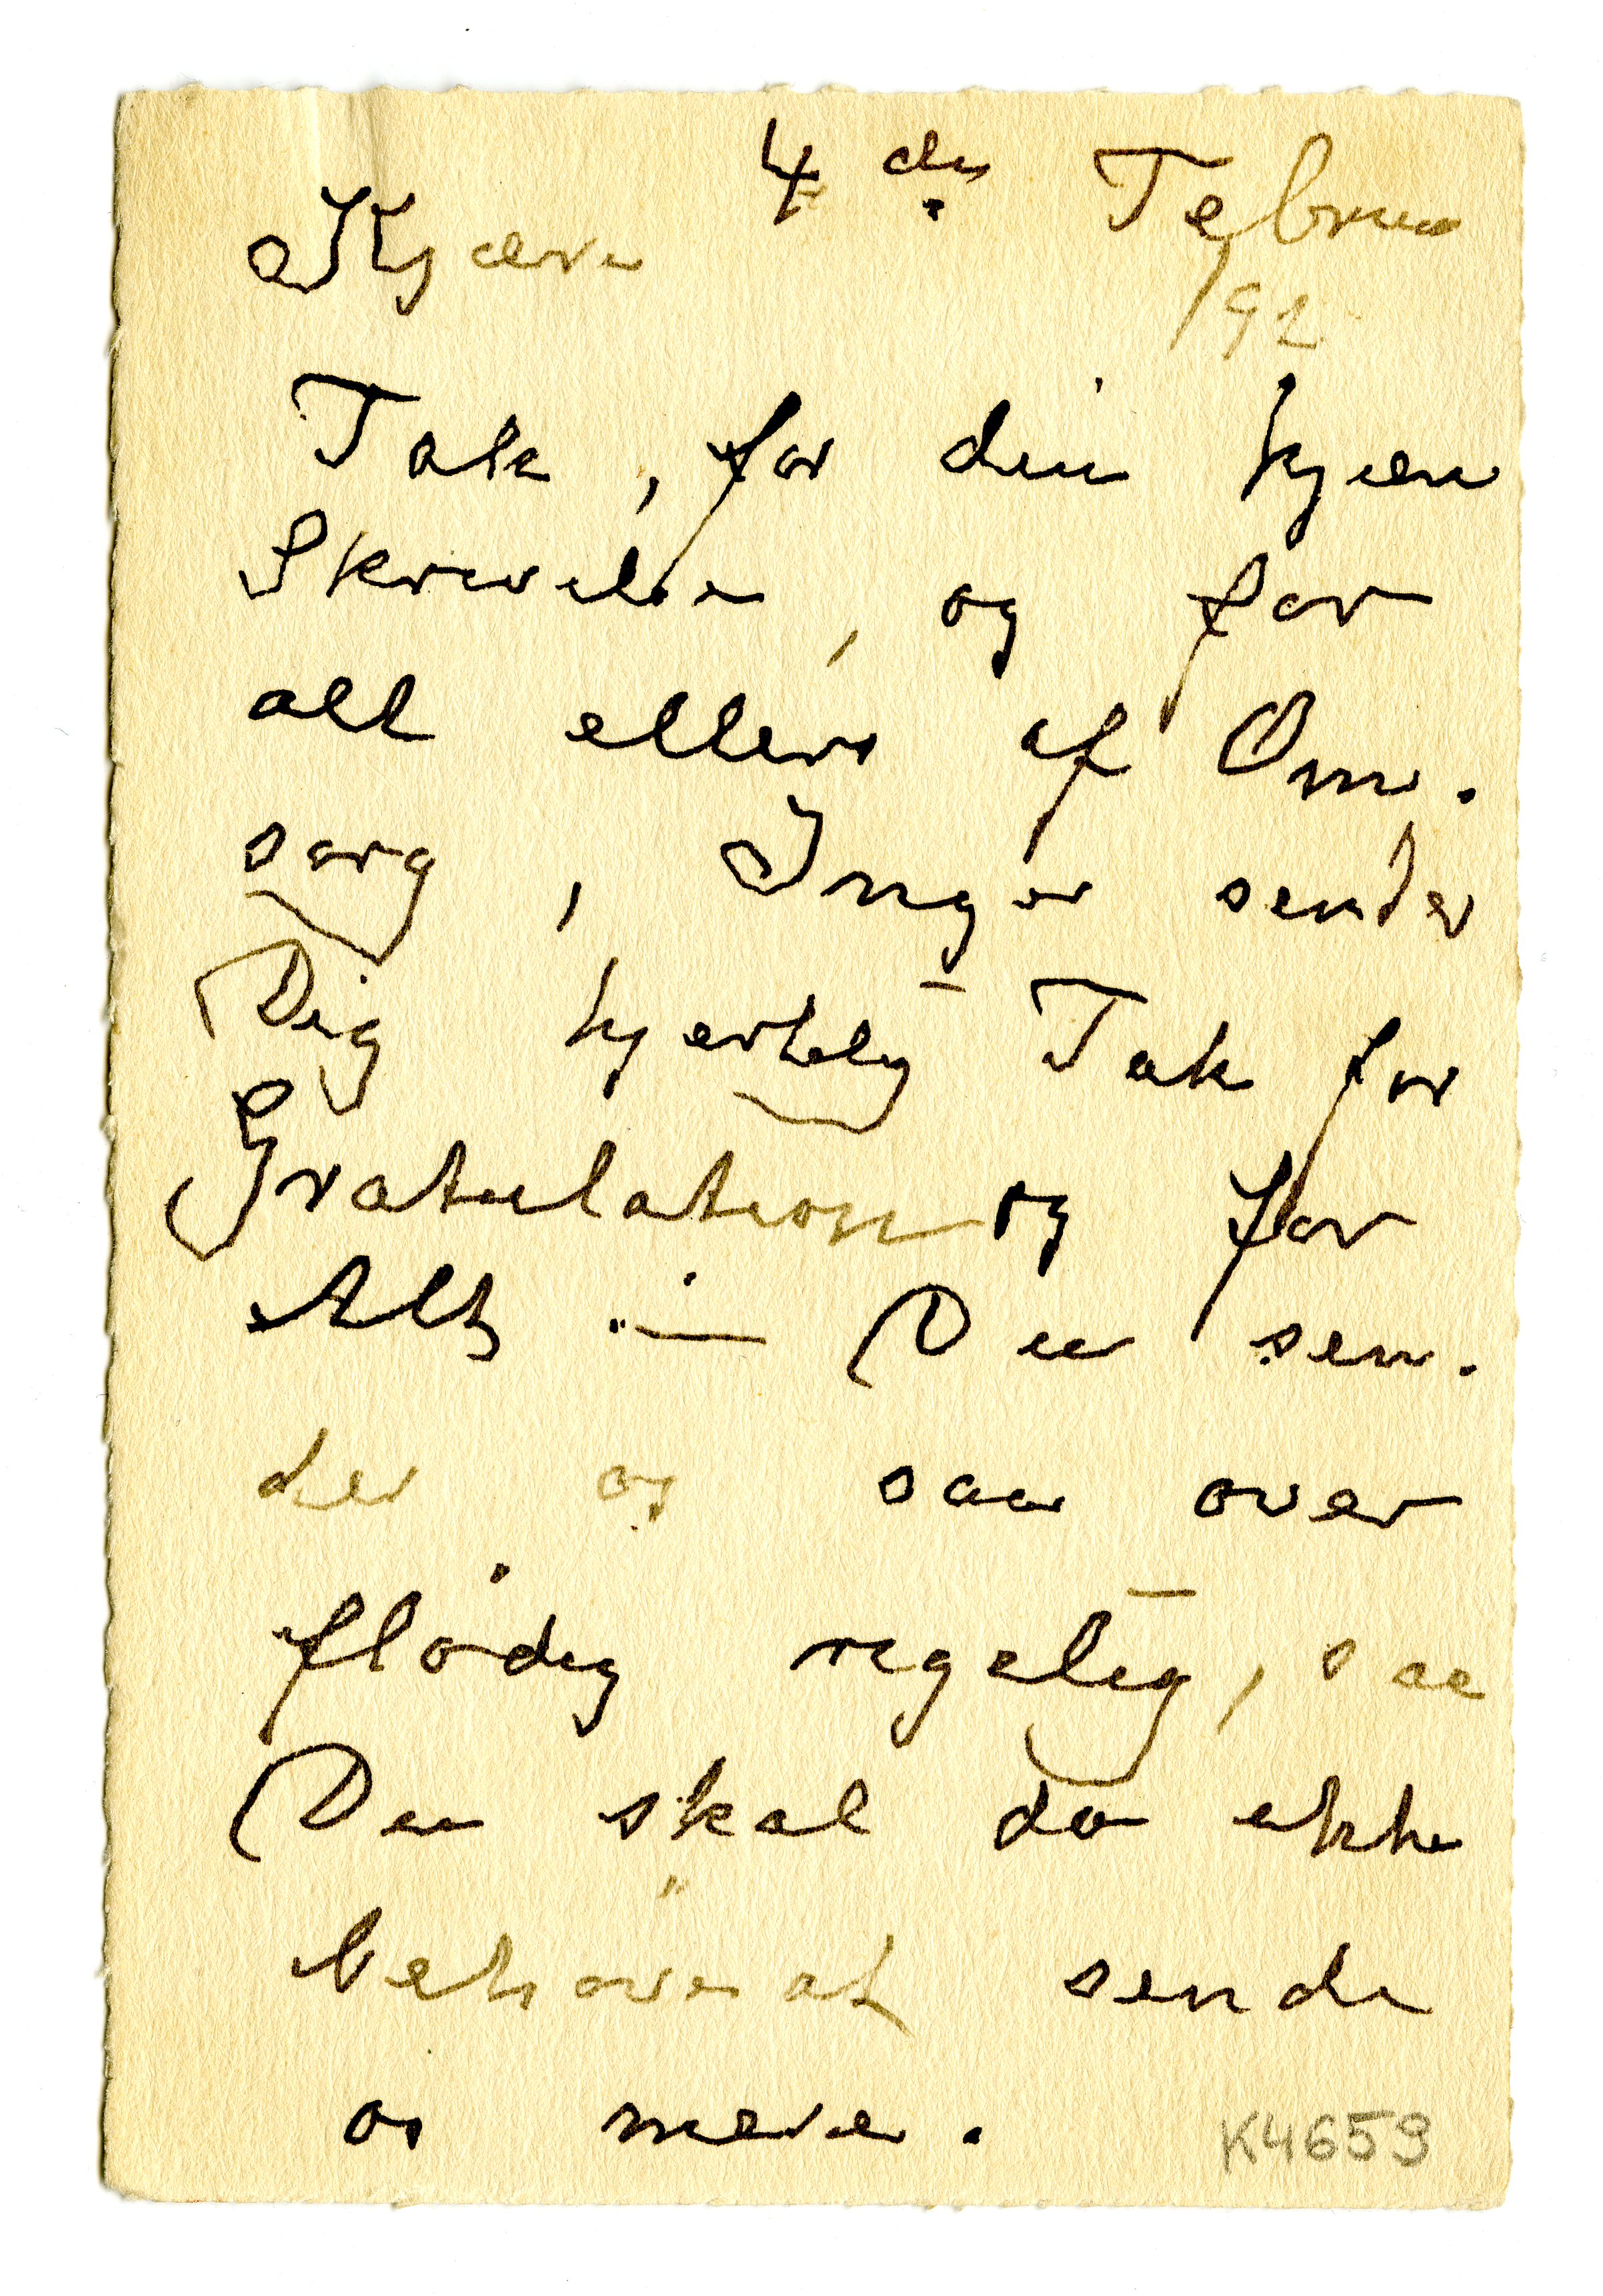 4 de Februar
Kjære
92
Tak, for din kjære
Skrivelse, og for
alt ellers af Om-
sorg, Inger sender
Dig hjertelig Tak for
Gratulation og for
Alt — Du sen-
der os saa over
flødig rigelig, saa
Du skal da ikke
behøve at sende
os mere.
K4659